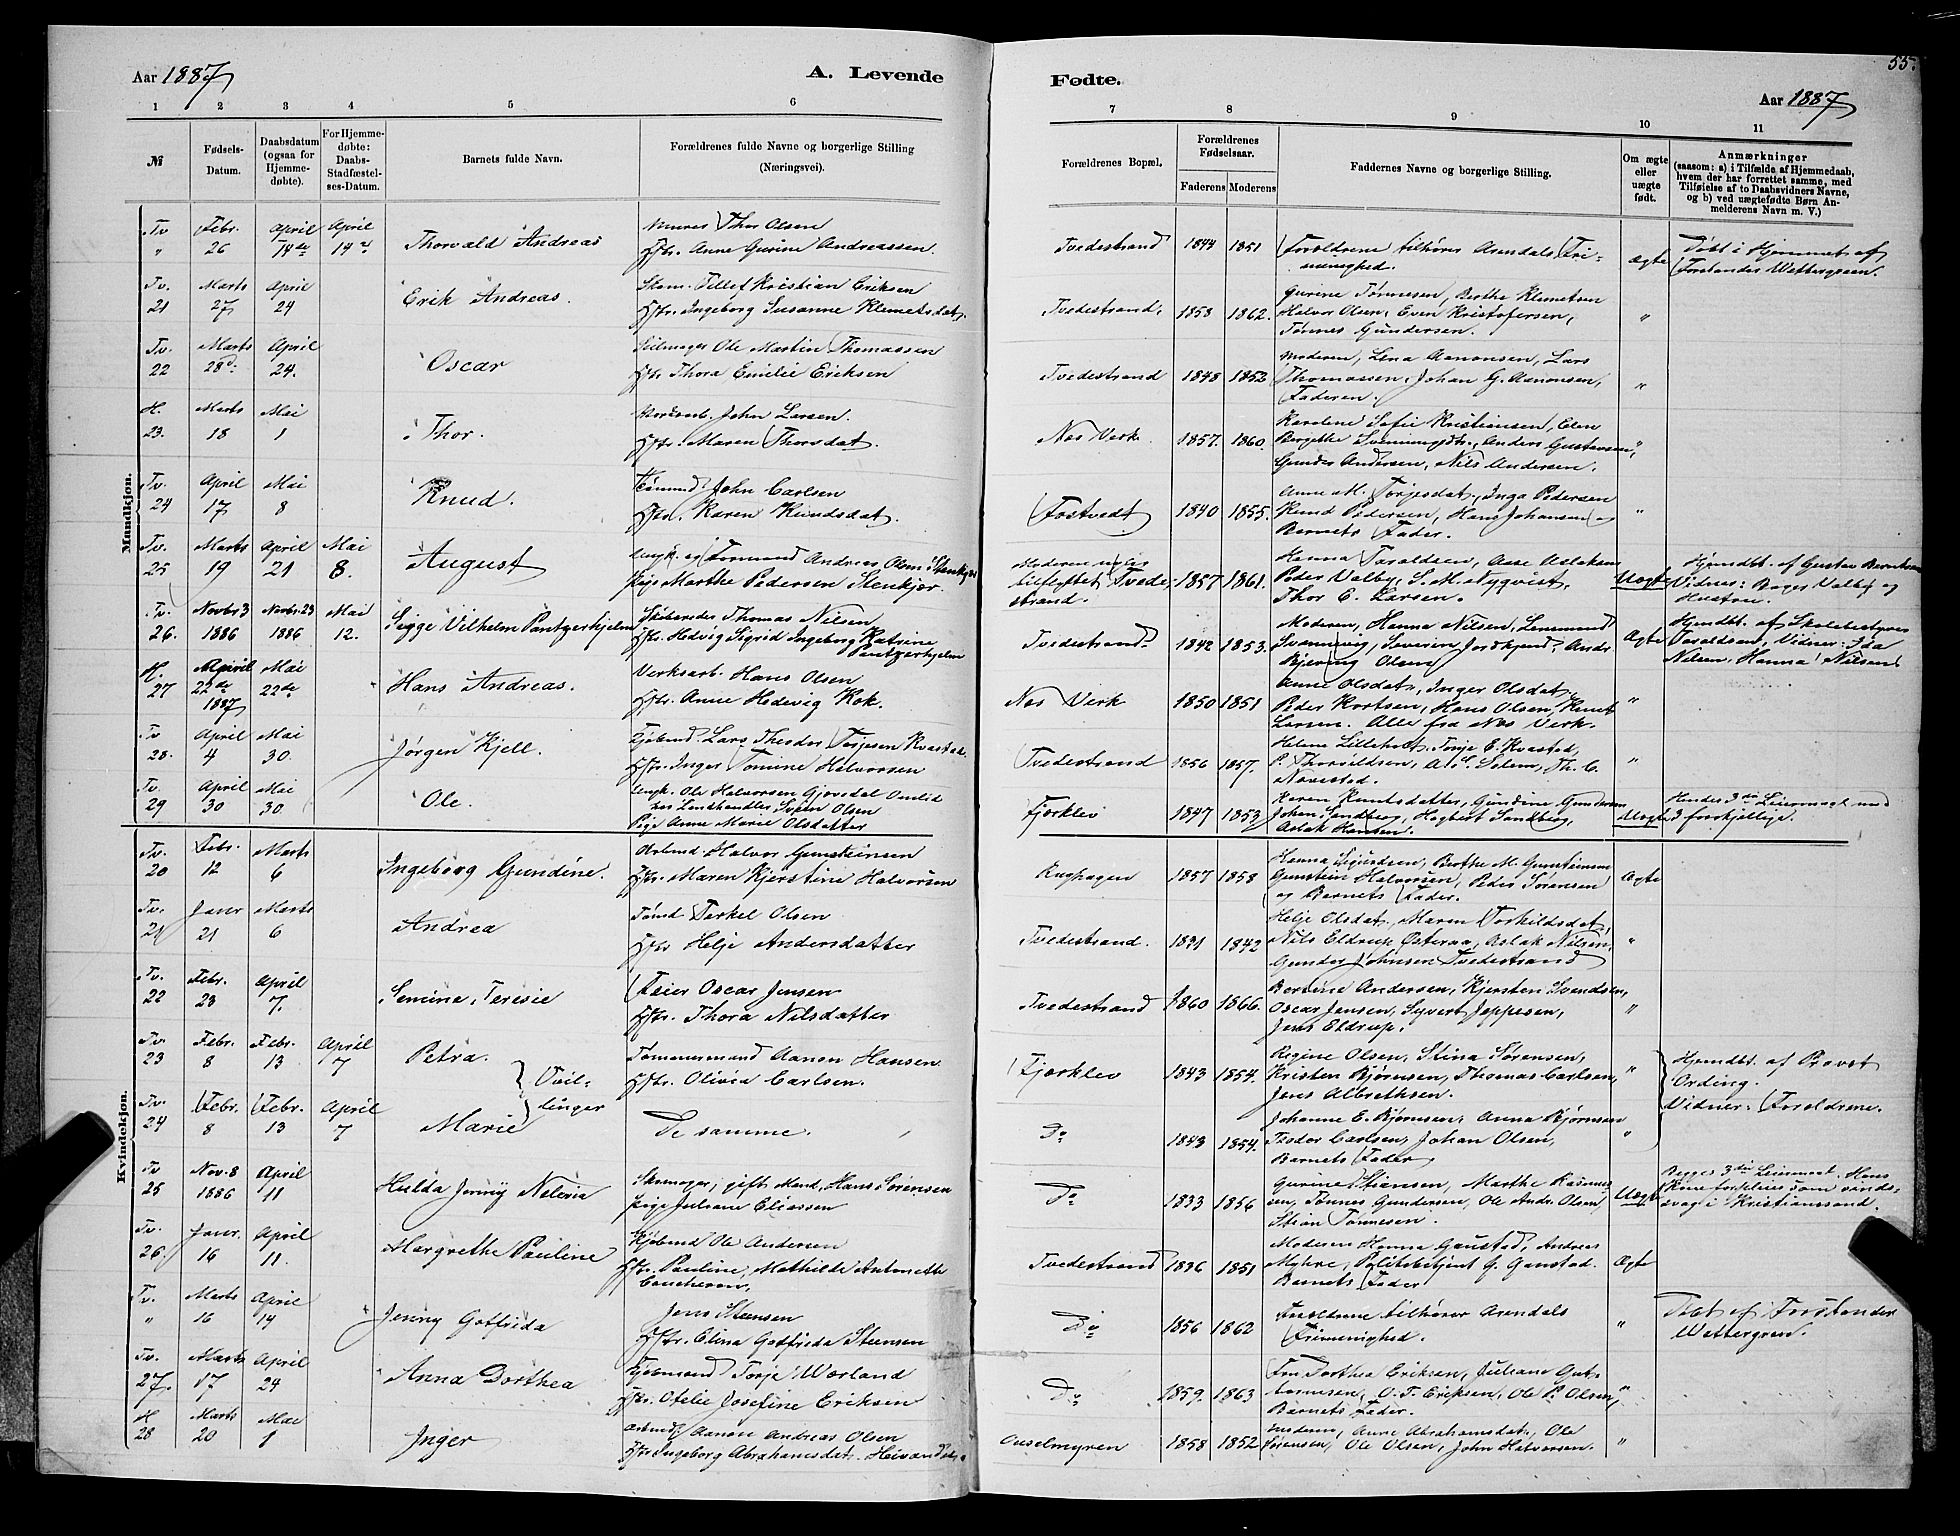 Aar 1887 A. Levende Fødte. Aar 1887 55.
1 2 3 4 5 6 7 8 9 10 11
№ Fødsels-Datum. Daabsdatum (ogsaa for Hjemmedøbte). For Hjemmedøbte: Daabs-Stadfæstelses-Datum. Barnets fulde Navn. Forældrenes fulde Navne og borgerlige Stilling (Næringsvei). Forældrenes Bopæl. Forældrenes Fødselsaar. Faderens Moderens Faddernes Navne og borgerlige Stilling. Om ægte eller uægte født. Anmærkninger (saasom: a) i Tilfælde af Hjemmedaab, hvem der har forrettet samme, med Tilføielse af to Daabsvidners Navne, og b) ved uægtefødte Børn Anmelderens Navn m. V.)
Mandkjøn.
Tv " Febr. 26 April 14de April 14de Thorvald Andreas Murer Thor Olsen
Hstr. Anne Gurine Andreassen. Tvedestrand 1844 1851 Forældrene tilhører Arendals Frimenighed. Ægte Døbt i Hjemmet af Forstander Wettergreen.
Tv. 21 Marts 27 April 24 Erik Andreas. Tellef Kristian Eriksen
Hstr. Ingeborg Susanne Klemetsdat. Tvedestrand. 1858 1862. Gurine Tønnesen, Berthe Klemetsen
Halvor Olsen, Even Kristofersen,
Tønnes Gundersen. "
Tv. 22 Marts 28d: April 24. Oscar Seilmager Ole Martin Thomassen
Hstr Thora Emilie Eriksen Tvedestrand 1848 1852 Moderen, Lena Aanonsen, Lars
Thomassen, Johan G. Aanonsen,
Faderen. "
H. 23. Marts 18 Mai 1 Thor. John Larsen.
Hstr. Maren Thorsdat. Nes Verk. 1857. 1860. Karoline Sofie Kristiansen, Elen
Birgithe Svenningsdtr., Anders Gustavsen
Gunder Andersen, Nils Andersen. "
Tv. 24 April 17 Mai 8 Knud. John Carlsen
Hstr. Karen Knudsdat. Fostvedt 1840 1855. Anne M. Torjesdat., Inga Pedersen
Knud Pedersen, Hans Johansen og
Barnets Fader. "
Tv. 25 Marts 19 April 21 Mai 8. August Ungk. og Tømmermand Andreas Olsen Stenkjær
Pige Marthe Pedersen Stenkjær. Moderen tilflyttet Tvedestrand. 1857 1861. Hanna Taraldsen, Aase Aslaksen
Peder Valby, S. M. Nyqvist,
Thor E. Larsen. Uægte Hjemdbt. af Gustav
Vidner: Bager Valby og
Hustru.
Tv. 26. Novbr 3 1886 Novbr. 23 1886 Mai 12. Sigge Vilhelm Pantzerhjelm Skibsreder Thomas Nilsen
Hstr. Hedvig Sigrid Ingeborg Katrine
Pantzerhjelm Tvedestrand 1842 1853. Moderen, Hanna Nilsen,
Svenningsen, Severin
Bjering Olsen Ægte Hjemdbt. af Skolebestyrer
Taraldsen, Vidner: Ida
Nilsen, Hanna Nilsen
H. 27 April 22de 1887 Mai 22de Hans Andreas. Verksarb. Hans Olsen
Hstr. Anne Hedevig Kok. Nes Verk 1850 1851 Anne Olsdat., Inger Olsdat.,
Peder Kortsen, Hans Olsen, Knut
Larsen. Alle fra Nes Verk. "
Tv 28. April 4 Mai 30. Jørgen Kjell. Kjøbmd. Lars Theodor Torjesen Kvastad
Hstr. Inger Tomine Halvorsen Tvedestrand 1856 1857. Helene Lilleholt, Torje E. Kvastad,
P. Thorvildsen, A. S. Selem, Th. C.
Navestad. "
Tv. 29 April 30 Mai 30. Ole. Ungk. Ole Halvorsen Gjovdal Omlid
hos Landhandler Svenn Olsen
Pige Anne Marie Olsdatter Fjorklev 1847 1853 Karen Knutsdatter, Gundine Gundersen
Johan Sandberg, Hagbert Sandberg,
Aslak Hansen. Uægte Hendes 3de Leiermaal med
3 forskjellige.
Kvindekjøn.
Tv. 20 Febr. 12 Marts 6 Ingeborg Gundine. Arbmd. Halvor Gunsteinsen
Hstr. Maren Kjerstine Halvorsen 1857 1858 Hanna Sigurdsen, Berthe M. Gunsteinsen
Gunstein Halvorsen, Peder Sørensen
og Barnets Fader. Ægte
Tv. 21 Janr 21 Marts 6 Andrea Tømd Terkel Olsen
Hstr Helje Andersdatter Tvedestrand. 1842 Helje Olsdat., Maren Torkildsdat.,
Nils Eldrup Østeraa, Aslak Nilsen,
Gunder Johnsen Tvedestrand "
Tv. 22 Febr. 23 April 7. Semine Teresie Feier Oscar Jensen
Hstr. Thora Nilsdatter Tvedestrand 1860 1866. Bernine Andersen, Kjersten Svendsen,
Oscar Jensen, Syvert Jeppesen,
Jens Eldrup. "
Tv. 23 Febr. 8 Febr. 13 April 7 Petra. Tvillinger Tømmermand Aanon Hansen
Hstr. Olivia Carlsen. Fjorklev 1843 1854. Regine Olsen, Stina Sørensen,
Kristen Bjørnsen, Thomas Carlsen,
Jens Albrethsen. " Hjemdbt. af Provst
Ording.
Vidner: Forældrene.
Tv. 24 Febr. 8 Febr. 13 April 7 Marie De samme. Do 1843 1854. Johanne E. Bjørnsen, Anna Bjørnsen
Teodor Carlsen, Johan Olsen,
Barnets Fader "
Tv 25 Nov. 8 1886 April 11 Hulda Jenny Skomager, gift Mand, Hans Sørensen
Pige Juliane Eliassen Do 1833 1856 Gurine Stiansen, Marthe Rasmussen,
Tønnes Gundersen, Ole Andr. Olsen,
Stian Tønnesen. Uægte Begges 3die Leiermaal. Hans
Kone forpleies som sindssvag i Kristianssand.
Tv 26. Janr. 16 April 11. Margrethe Pauline Kjøbmd Ole Andersen
Hstr. Pauline, Mathilde Antonette
Caucheron. Tvedestrand 1836 1851 Moderen Hanna Gaustad, Andreas
Myhre, Politibetjent G. Gaustad.
Barnets Fader Ægte
Tv. " Marts 16 April 14 Jenny Gotfrida Jens Steensen
Hstr. Elina Gotfrida Steensen Do 1856 1862 Forældrene tilhører Arendals
Frimenighed. " Døbt af Forstander
Wettergren.
Tv. 27. Marts 17 April 24 Anna Dorthea Kjøbmand Torje Worland
Hstr. Otelie Josefine Eriksen Do 1859. 1863 Fru Dorthea Eriksen, Juliane
O. T. Eriksen, Ole P. Olsen
Barnets Fader. "
H 28 Marts 20 Mai 1 Inger Arbmd. Aanon Andreas Olsen
Hstr Ingeborg Abrahamsdat. Auselmyren 1858 1852 Moderen, Anne Abrahamsdat., Ole
Sørensen, Ole Olsen, John Halvorsen. "